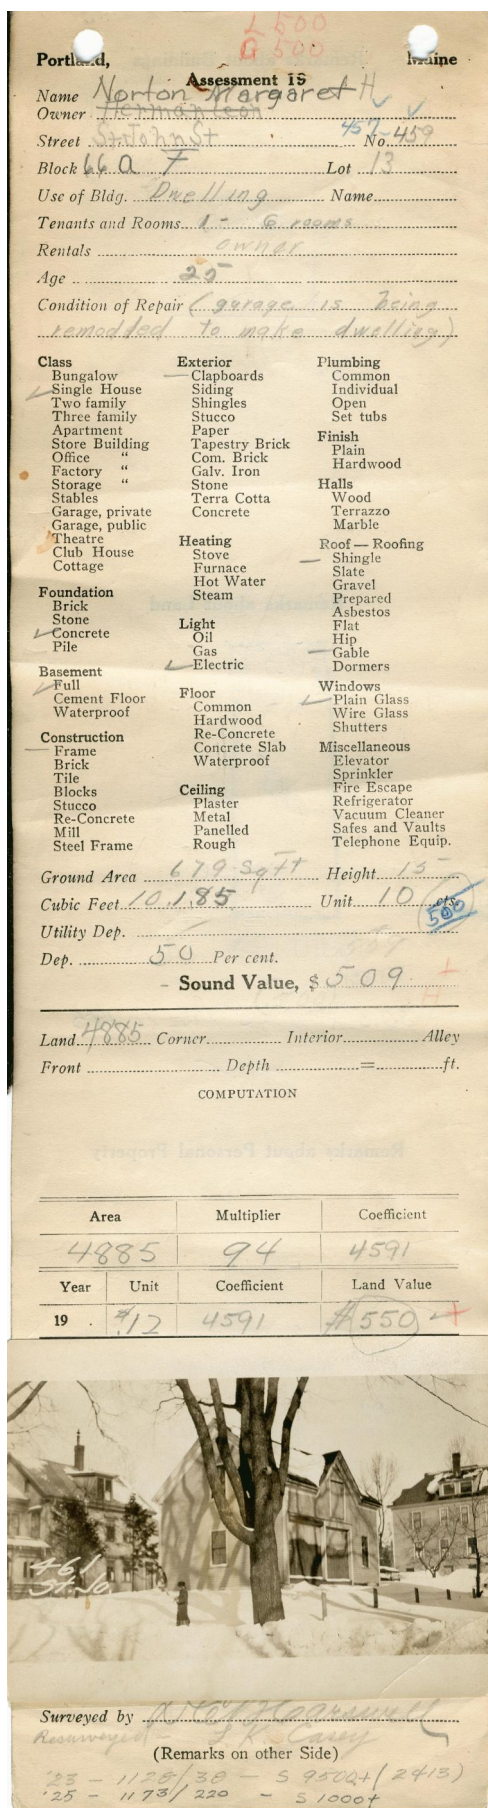 L 500
B 500
Portland, Maine
Assessment 19
Name Norton Margaret H
Owner Herman Leon
Street St. John St No. 457-459
Block 66 a F Lot 13
Use of Bldg. Dwelling Name
Tenants and Rooms 1 - 6 rooms
Rentals owner
Age 25
Condition of Repair (garage is being
remodded to make dwelling)
Class
Bungalow
Single House
Two family
Three family
Apartment
Store Building
Office "
Factory "
Storage "
Stables
Garage, private
Garage, public
Theatre
Club House
Cottage
Foundation
Brick
Stone
Concrete
Pile
Basement
Full
Cement Floor
Waterproof
Construction
Frame
Brick
Tile
Blocks
Stucco
Re-Concrete
Mill
Steel Frame
Exterior
Clapboards
Siding
Shingles
Stucco
Paper
Tapestry Brick
Com. Brick
Galv. Iron
Stone
Terra Cotta
Concrete
Heating
Stove
Furnace
Hot Water
Steam
Light
Oil
Gas
Electric
Floor
Common
Hardwood
Re-Concrete
Concrete Slab
Waterproof
Ceiling
Plaster
Metal
Panelled
Rough
Plumbing
Common
Individual
Open
Set tubs
Finish
Plain
Hardwood
Halls
Wood
Terrazzo
Marble
Roof — Roofing
Shingle
Slate
Gravel
Prepared
Asbestos
Flat
Hip
Gable
Dormers
Windows
Plain Glass
Wire Glass
Shutters
Miscellaneous
Elevator
Sprinkler
Fire Escape
Refrigerator
Vacuum Cleaner
Safes and Vaults
Telephone Equip.
Ground Area 679 Sq ft Height 15
Cubic Feet 10,185 Unit 10 cts.
500
Utility Dep.
Dep. 50 Per cent.
- Sound Value, $ 509
Land 4885 Corner Interior Alley
Front Depth = ft.
COMPUTATION
Area Multiplier Coefficient
4885 94 4591
Year Unit Coefficient Land Value
19 . $.12 4591 $550
461
St. Jo
Surveyed by
Resurveyed L K Casey
(Remarks on other Side)
'23 - 1128/38 - S 9500+ (2413)
'25 - 1173/220 - S 1000+